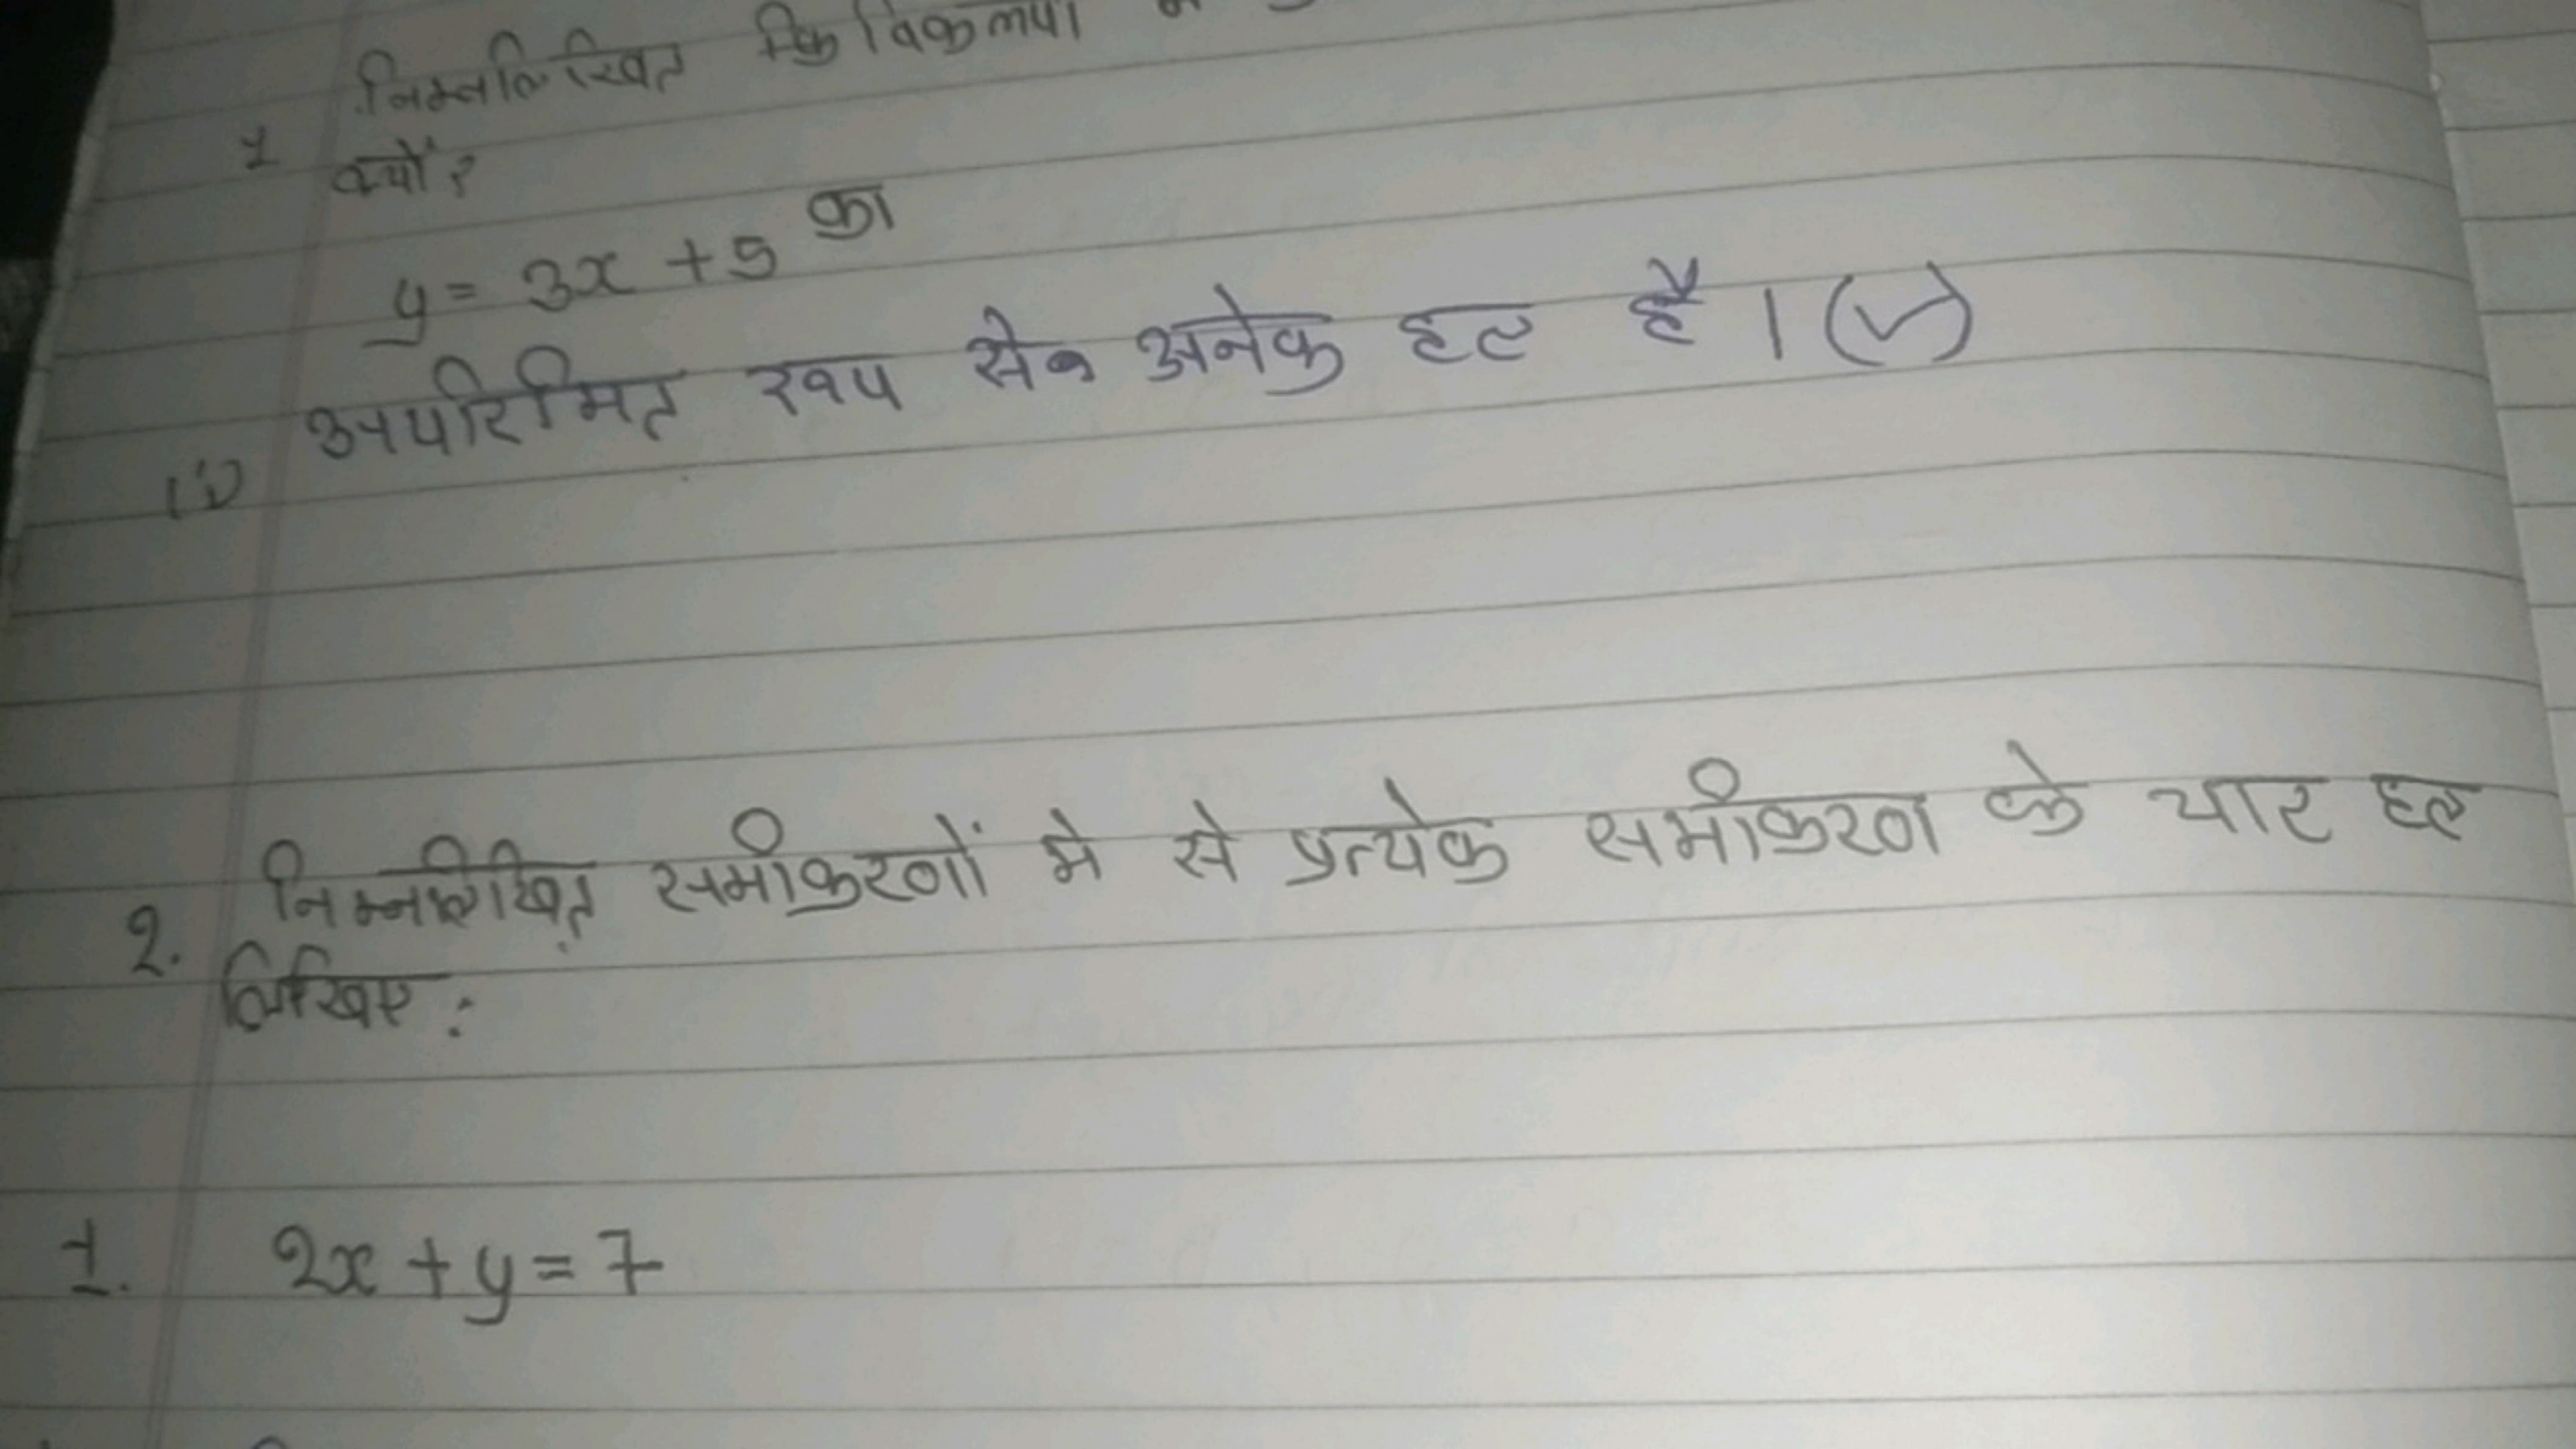 निम्नलिखित
1 क्यों?
y = 3x + 5 का
(i) अपरिमित रूप से अनेक हल है । (✓)
2. निम्नलिखित समीकरणों मे से प्रत्येक समीकरण के चार हल
लिखिए :
1. 2x + y = 7